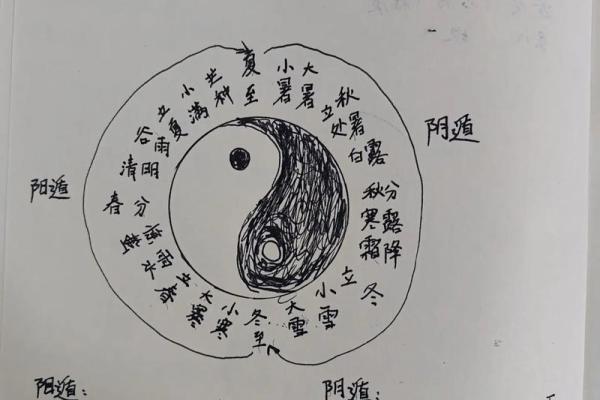 夏至
小暑
大暑
立秋
处暑
白露
秋分
寒露
霜降
立冬
小雪
大雪
冬至
小寒
大寒
立春
雨水
惊蛰
春分
清明
谷雨
立夏
小满
芒种
阳遁
阴遁
阳遁：
阴遁：